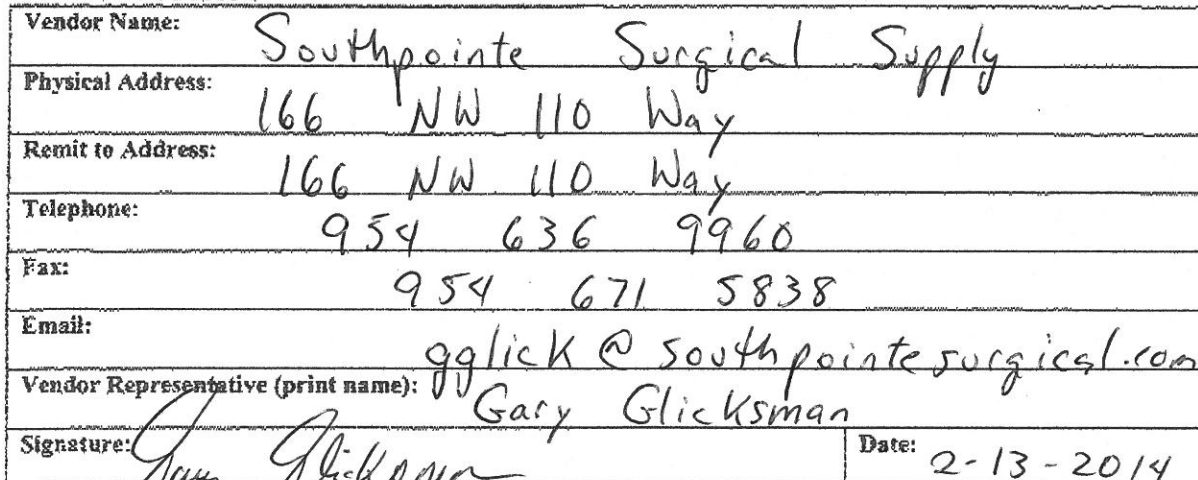 Vendor Name: Southpointe Surgical Supply
Physical Address: 166 NW 110 Way
Remit to Address: 166 NW 110 Way
Telephone: 954 636 9960
Fax: 954 671 5838
Email: gglick@southpointesurgical.com
Vendor Representative (print name): Gary Glicksman
Signature: Gary Glicksman Date: 2-13-2014